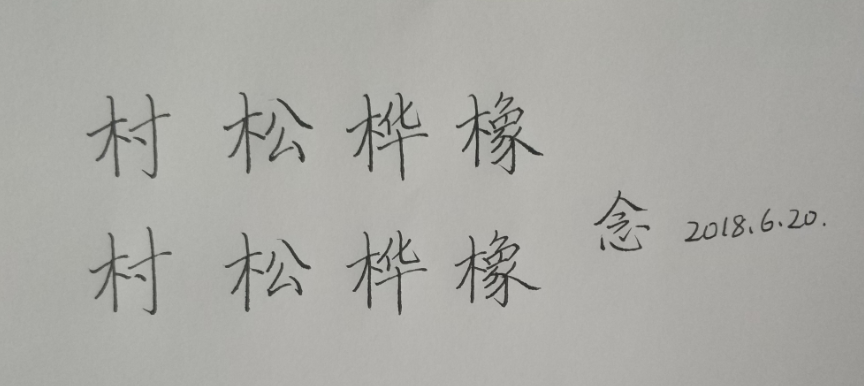 村松桦橡
念 2018.6.20.
村松桦橡